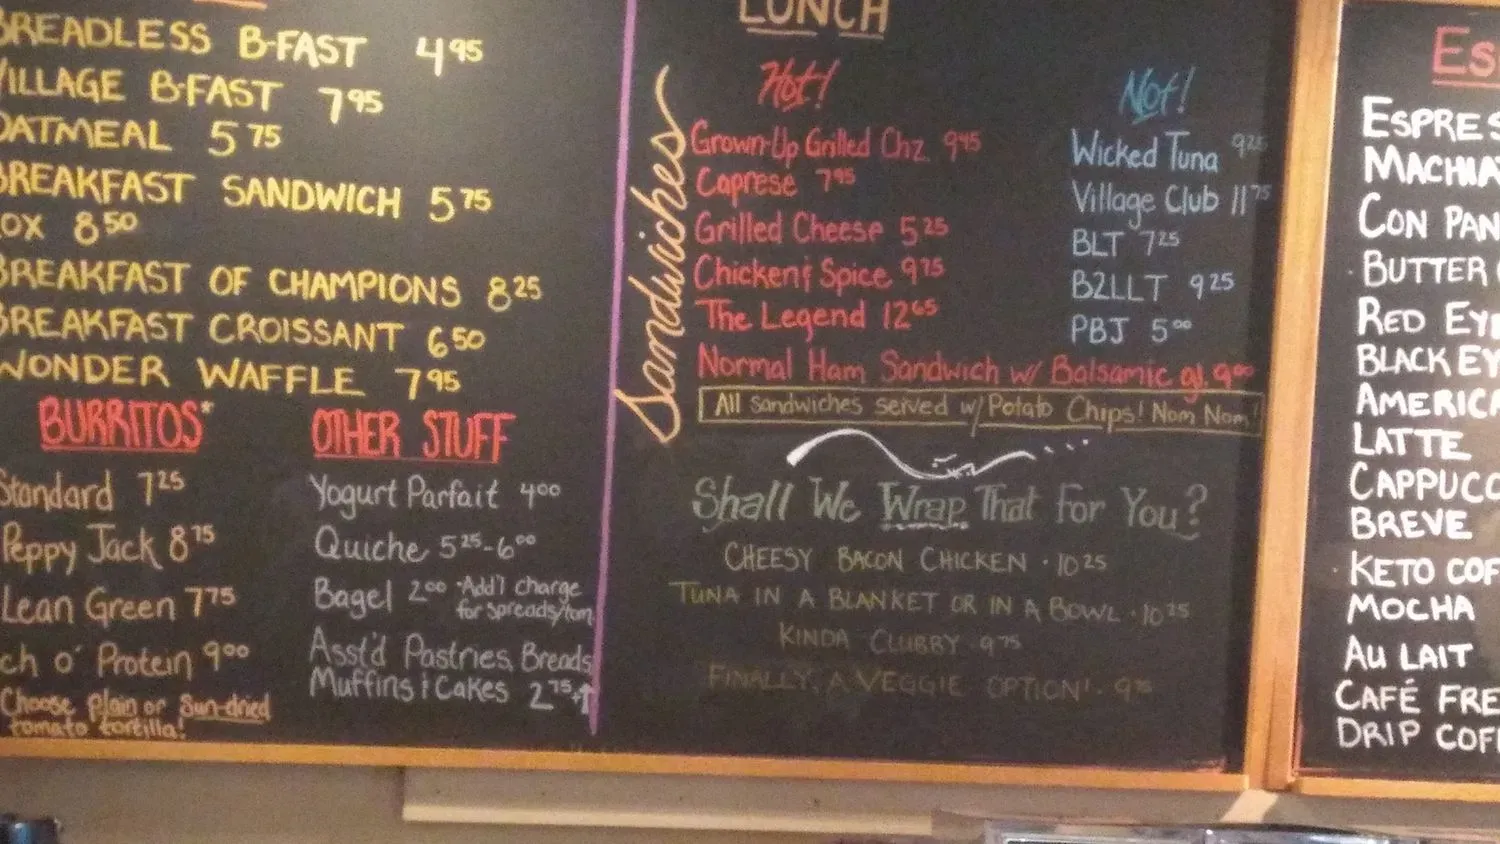 BREADLESS B-FAST 4 95
VILLAGE B-FAST 7 95
OATMEAL 5 75
BREAKFAST SANDWICH 5 75
LOX 8 50
BREAKFAST OF CHAMPIONS 8 25
BREAKFAST CROISSANT 6 50
WONDER WAFFLE 7 95
BURRITOS*
Standard 7 25
Peppy Jack 8 75
Lean Green 7 75
ch o' Protein 9 00
Choose Plain or Sun-dried
tomato tortilla!
OTHER STUFF
Yogurt Parfait 4 00
Quiche 5 25-6 00
Bagel 2 00 *Add'l charge
for spreads/tom
Asst'd Pastries, Breads
Muffins & Cakes 2 75+↑
LUNCH
Sandwiches
Hot!
Grown-Up Grilled Chz. 9 45
Caprese 7 95
Grilled Cheese 5 25
Chicken & Spice 9 75
The Legend 12 65
Normal Ham Sandwich w/ Balsamic gl. 9 00
Not!
Wicked Tuna 9 25
Village Club 11 75
BLT 7 25
B2LLT 9 25
PBJ 5 00
All sandwiches served w/ Potato Chips! Nom Nom!
Shall We Wrap That For You?
CHEESY BACON CHICKEN · 10 25
TUNA IN A BLANKET OR IN A BOWL · 10 25
KINDA CLUBBY · 9 75
FINALLY, A VEGGIE OPTION! ·
Es
ESPRES
MACHIAT
CON PAN
BUTTER
RED EYE
BLACK EY
AMERICA
LATTE
CAPPUCC
BREVE
KETO COF
MOCHA
AU LAIT
CAFÉ FRE
DRIP COFF